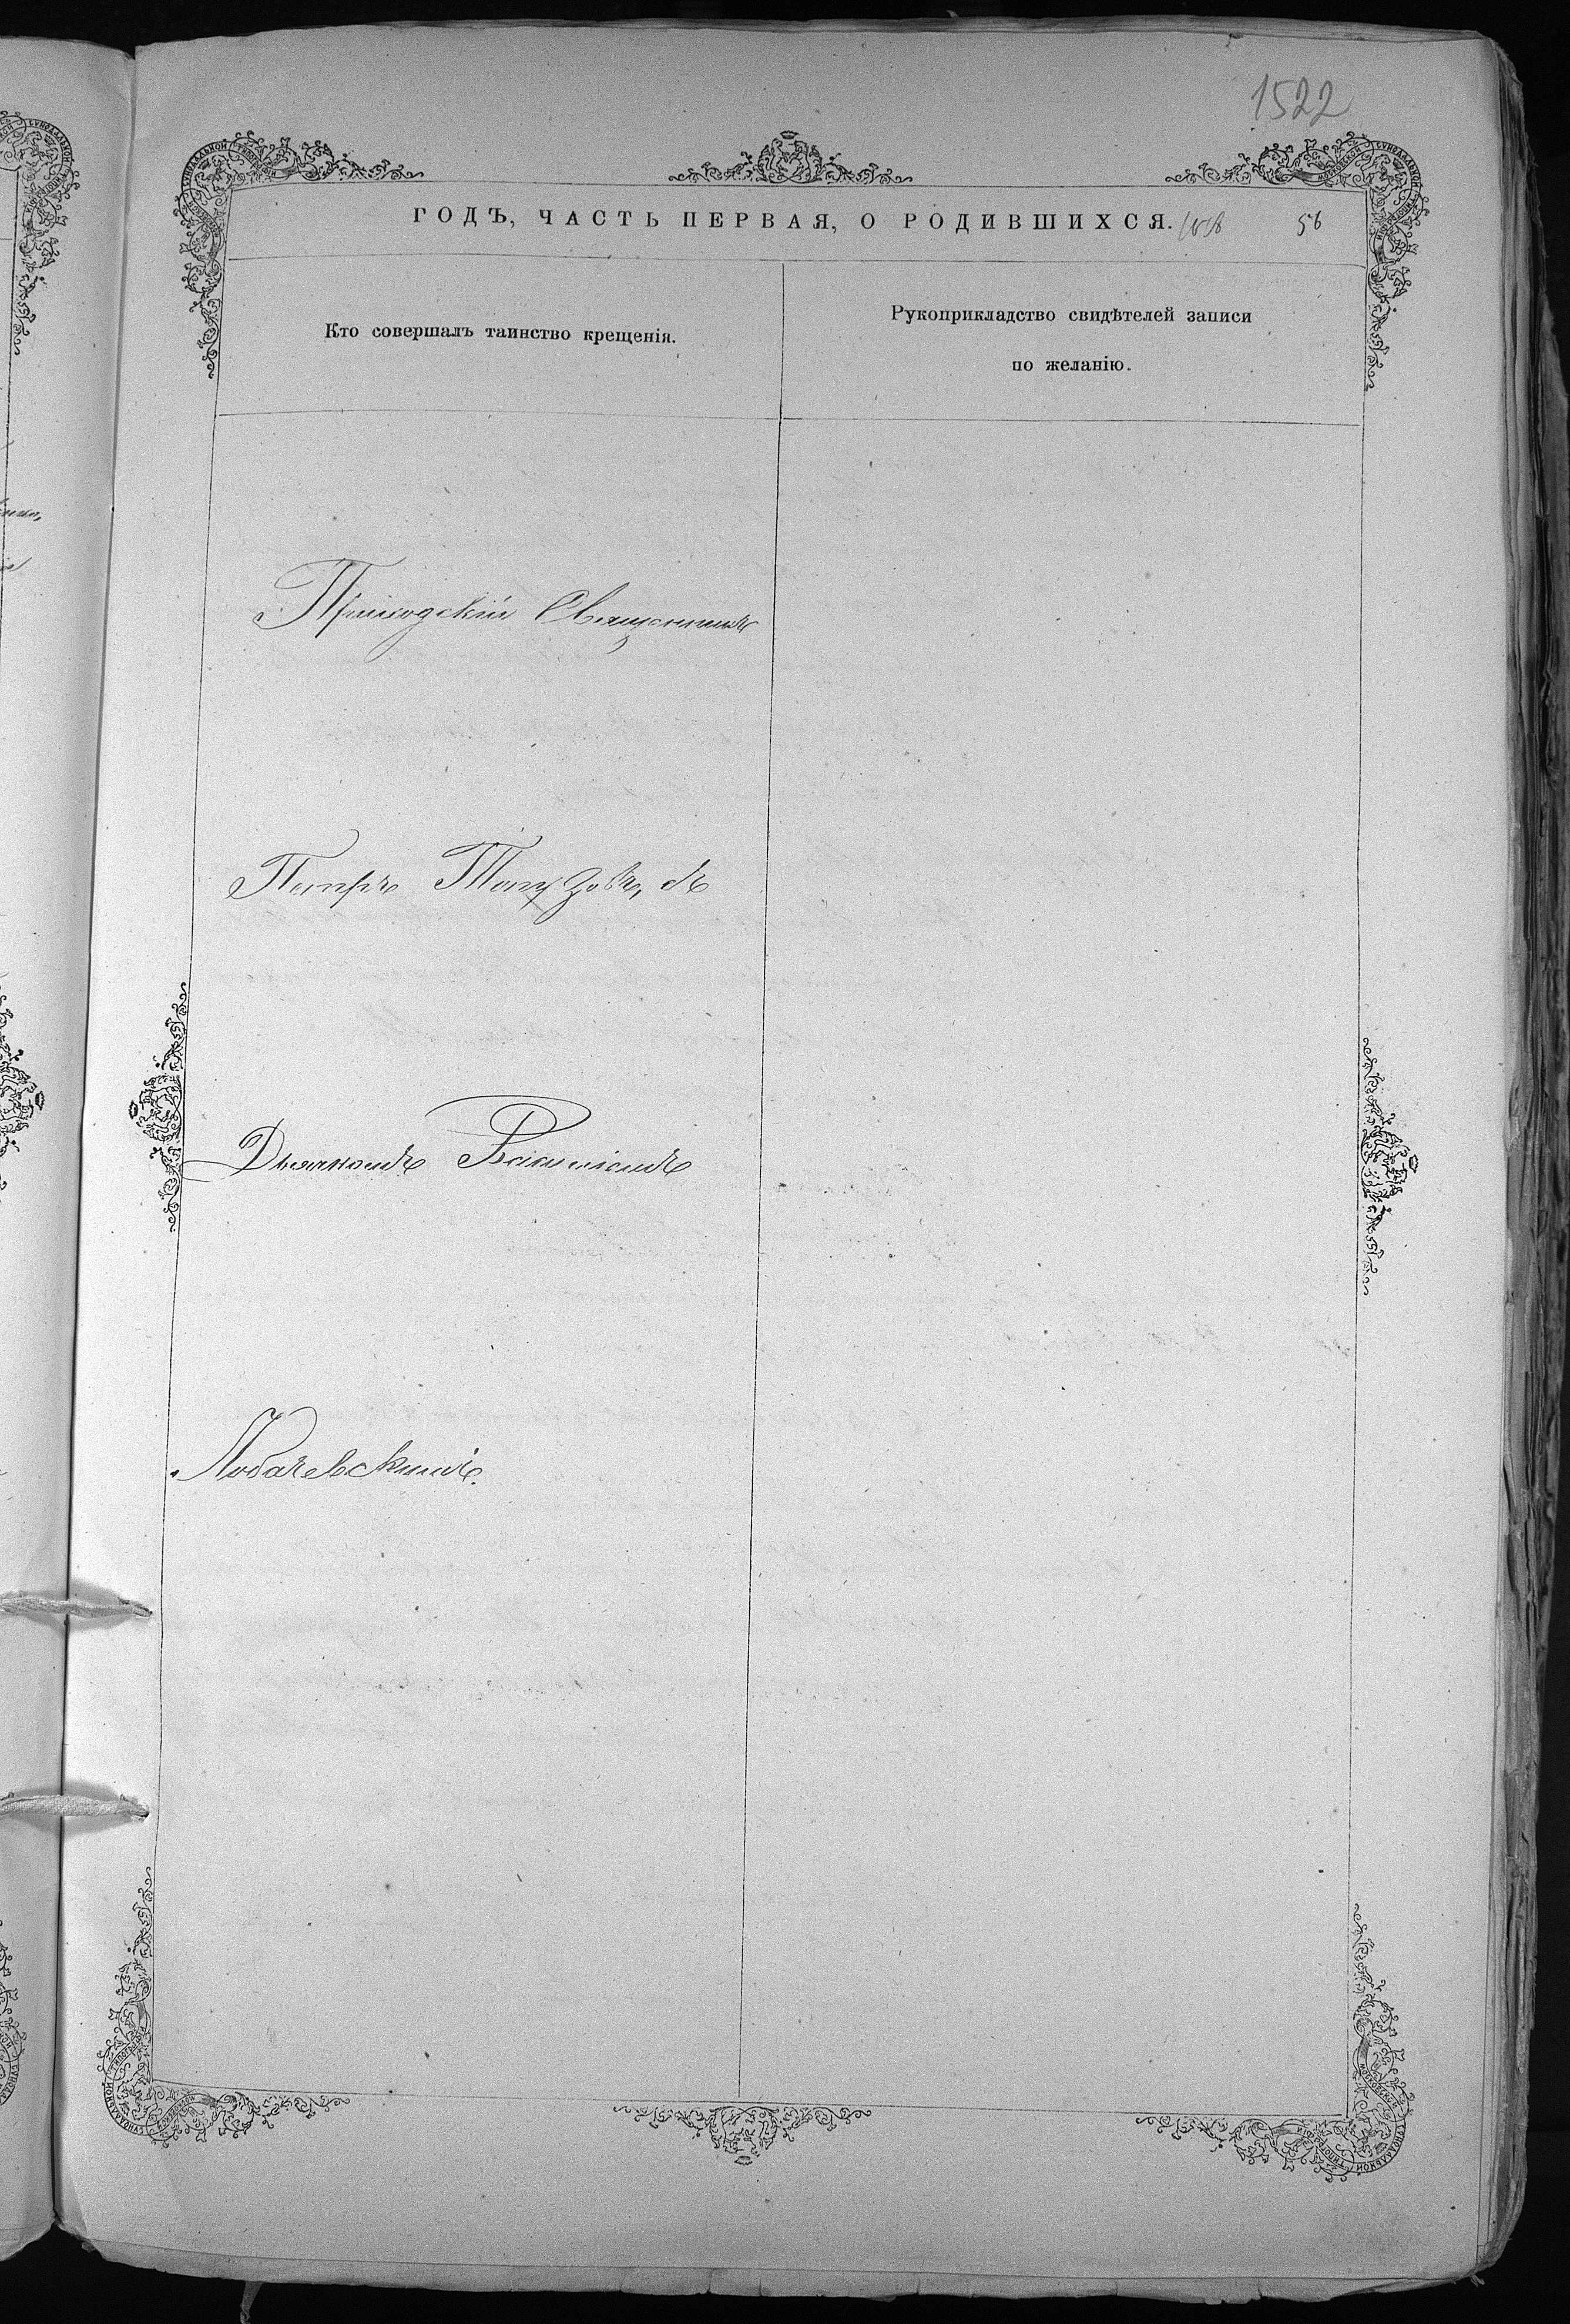 1522
ГОДЪ, ЧАСТЬ ПЕРВАЯ, О РОДИВШИХСЯ. 56
Кто совершалъ таинство крещенія.
Рукоприкладство свидѣтелей записи
по желанію.
Приходскій Священникъ
Петръ съ
Дьячкомъ
Лобачевскимъ.